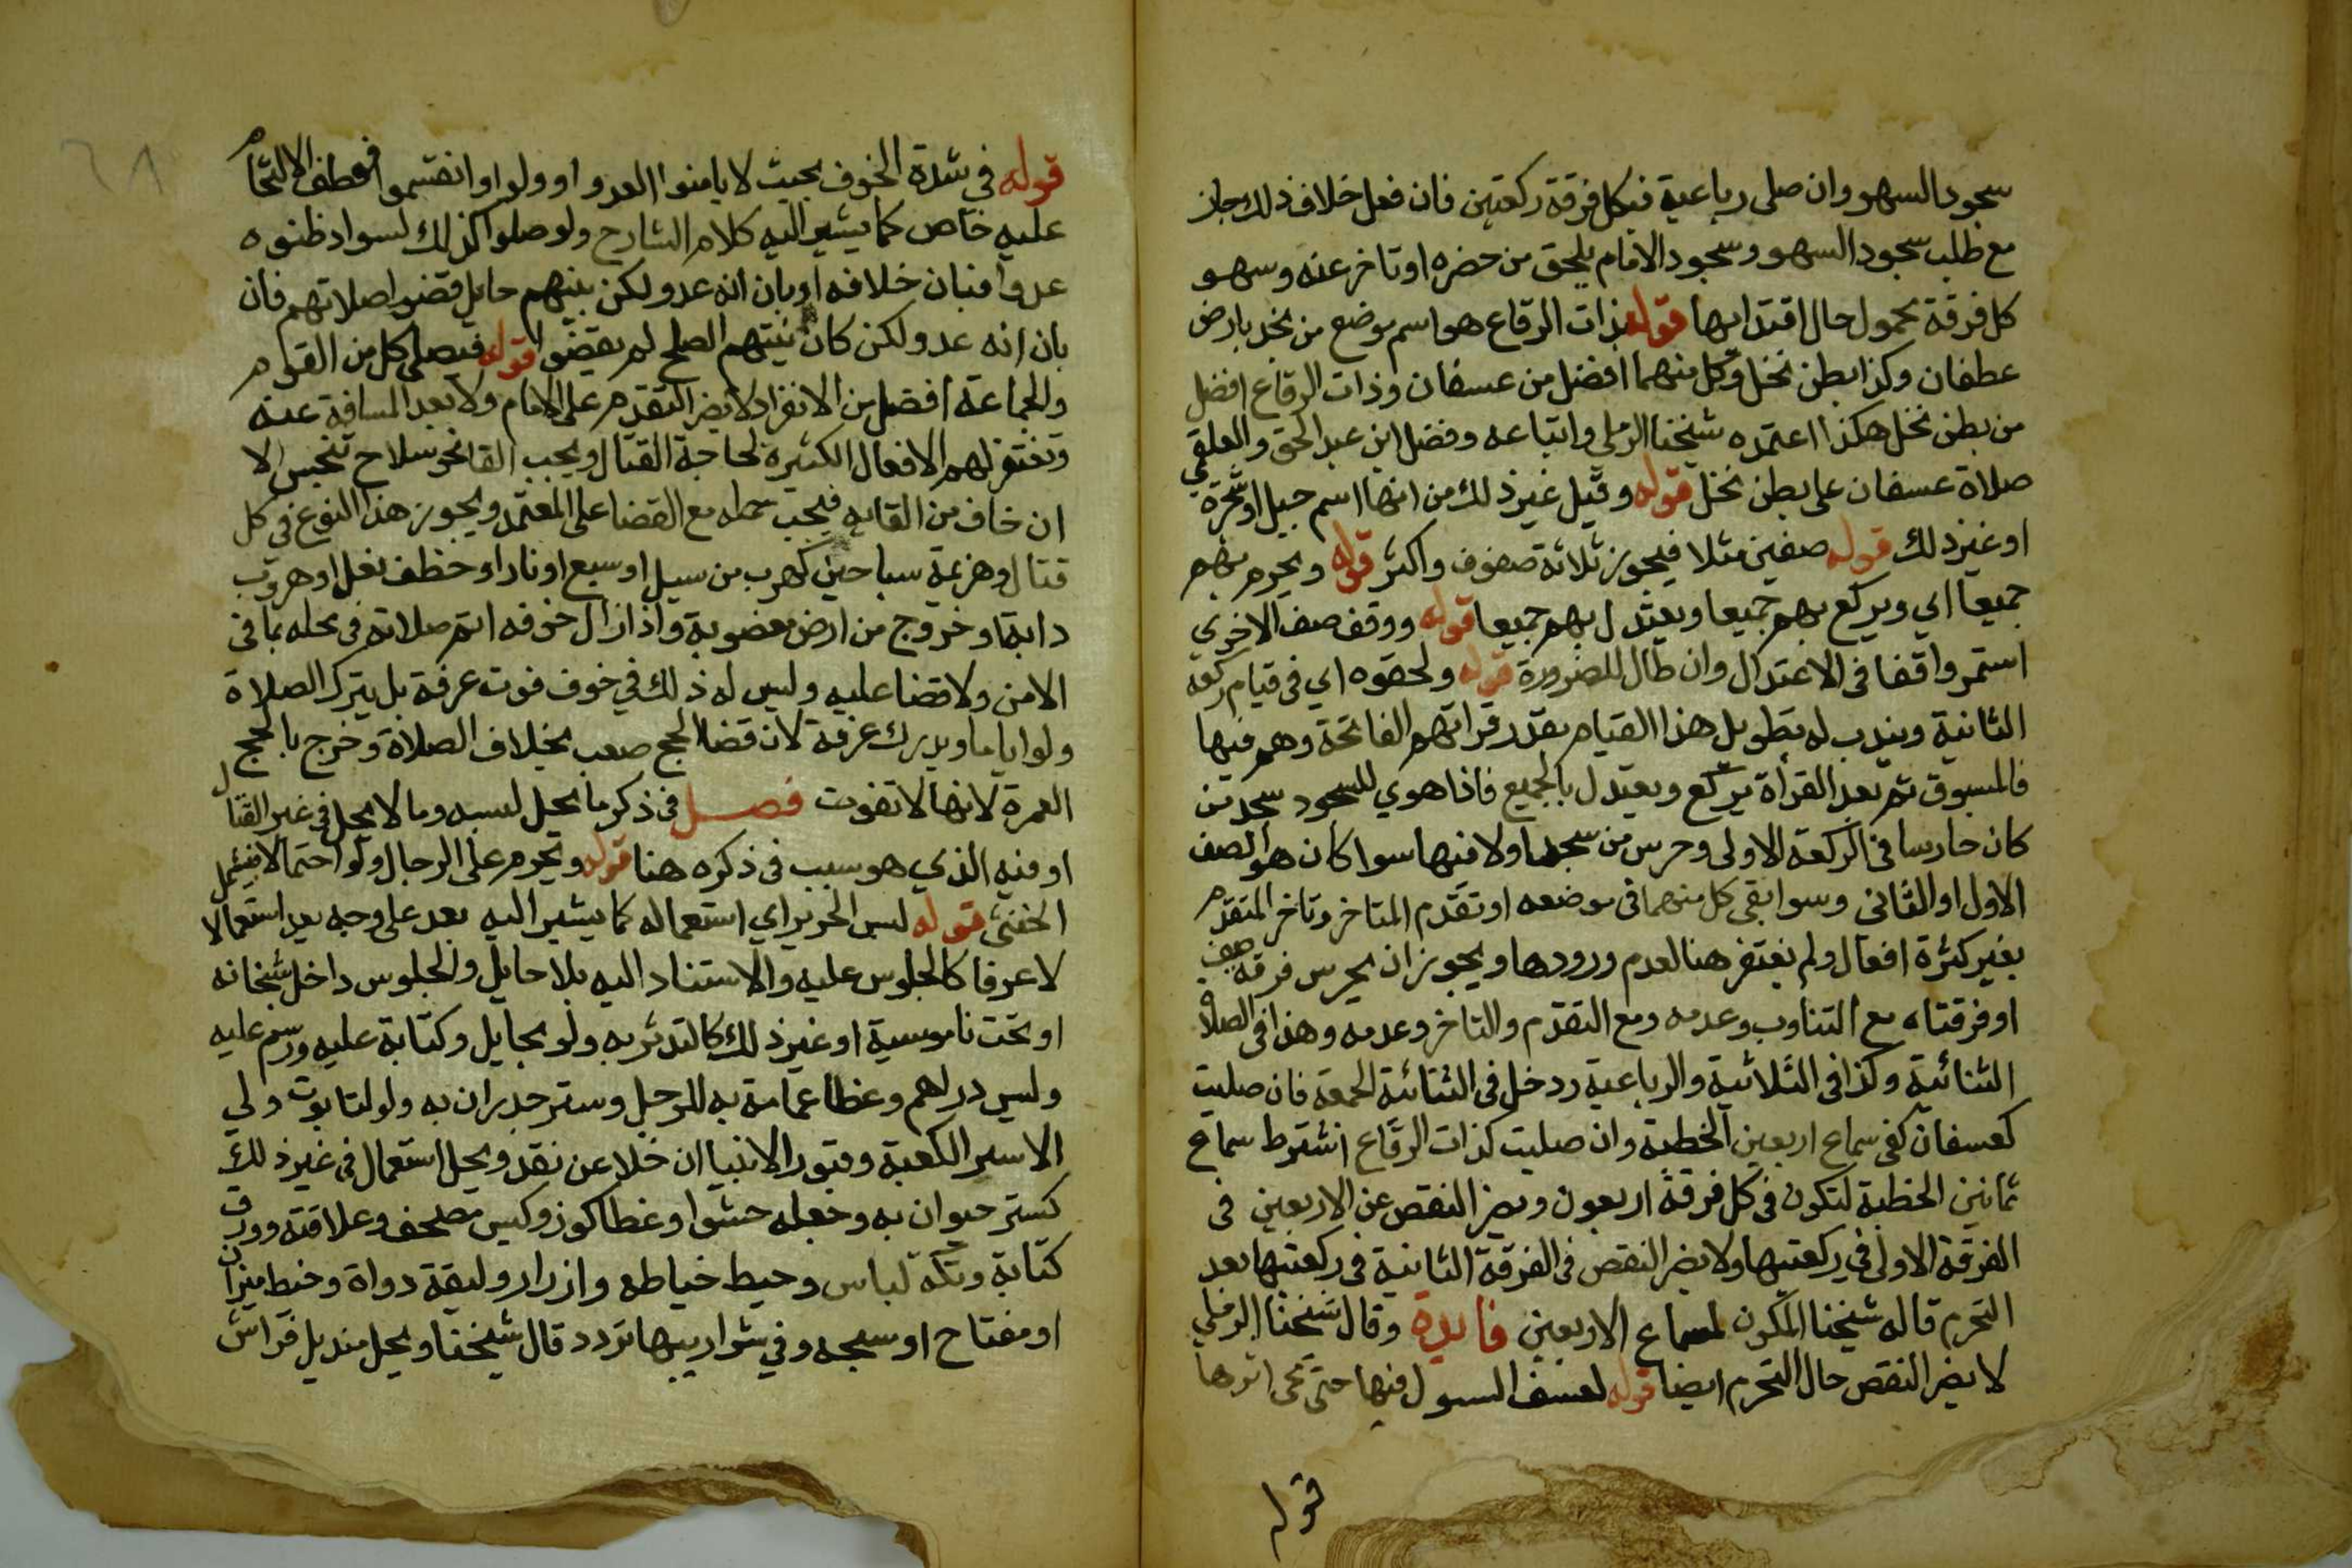 سجود السهو وان صلى رباعية فبكل فرقة ركعتين فان فعل خلاف ذلك جاز
مع طلب سجود السهو وسجود الامام يلحق من حضره او تاخر عنه وسهو
كل فرقة محمول حال اقتدايها قوله بذات الرقاع هو اسم موضع من نجد بارض
غطفان وكذا بطن نخل وكل منهما افضل من عسفان وذات الرقاع افضل
من بطن نخل هكذا اعتمده شيخنا الرملي واتباعه وفضل ابن عبد الحق والعلقمي
صلاة عسفان على بطن نخل قوله وقيل غير ذلك من انها اسم جبل او شجرة
او غير ذلك قوله صفين مثلا فيجوز ثلاثة صفوف واكثر قوله ويحرم بهم
جميعا اي ويركع بهم جميعا ويعتدل بهم جميعا قوله ووقف صف الاخرى
استمر واقفا في الاعتدال وان طال للضرورة قوله ولحقوه اي في قيام ركعة
الثانية ويندب له تطويل هذا القيام بقدر قراتهم الفاتحة وهم فيها
كالمسبوق ثم بعد القراة يركع ويعتدل بالجميع فاذا هوي للسجود سجد من
كان حارسا في الركعة الاولى وحرس من سجد اولا فيها سوا كان هو الصف
الاول او الثاني وسوا بقي كل منهما في موضعه او تقدم المتاخر وتاخر المتقدم
بغير كثرة افعال ولم تغتفر هنا لعدم ورودها ويجوز ان يحرس فرقة صف
او فرقتاه مع التناوب وعدمه ومع التقدم والتاخر وعدمه وهذا في الصلاة
الثنائية وكذا في الثلاثية والرباعية ودخل في الثنائية الجمعة فان صليت
كعسفان كفى سماع اربعين الخطبة وان صليت كذات الرقاع اشترط سماع
ثمانين الخطبة لتكون في كل فرقة اربعون ويضر النقص عن الاربعين في
الفرقة الاولى في ركعتيها ولا يضر النقص في الفرقة الثانية في ركعتيها بعد
التحرم قاله شيخنا المكرون لسماع الاربعين فايدة وقال شيخنا الرملي
لا يضر النقص حال التحرم ايضا قوله لعسف السول فيها حتى تمحى اثرها
قوله
قوله في شدة الخوف بحيث لا يامنوا العدو او ولوا او انقسموا فعطف الالتحام
عليه خاص كما يشير اليه كلام الشارح ولو صلوا كذلك لسواد ظنوه
عدوا فبان خلافه او بان انه عدو لكن بينهم حايل قضوا صلاتهم فان
بان انه عدو لكن كان نيتهم الصلح لم يقضوا قوله فيصلى كل من القوم
والجماعة افضل من الانفراد لا يضر التقدم على الامام ولا بعد المسافة عنه
وتغتفر لهم الافعال الكثيرة لحاجة القتال ويجب القا نحو سلاح تنجس الا
ان خاف من القايه فيجب حمله مع القضا على المعتمد ويجوز هذا النوع في كل
قتال وهزيمة مباحين كهرب من سيل او سبع او نار او خطف نعل او هروب
دابة او خروج من ارض مغصوبة واذا زال خوفه اتم صلاته في محله بما في
الامن ولا قضا عليه وليس له ذلك في خوف فوت عرفة بل يترك الصلاة
ولو اياما ويدرك عرفة لان قضا الحج صعب بخلاف الصلاة وخرج بالحج
العمرة لانها لا تفوت فصل في ذكر ما يحل لبسه وما لا يحل في غير القتال
او فيه الذي هو سبب في ذكره هنا قوله ويحرم على الرجال ولو احتمالا فيشمل
الخنثى قوله لبس الحرير اي استعماله كما يشير اليه بعد على وجه يعد استعمالا
لا عرفا كالجلوس عليه والاستناد اليه بلا حايل والجلوس داخل شخانه
او تحت ناموسية او غير ذلك كالتدثر به ولو بحايل وكتابة عليه ورسم عليه
وليس دراهم وغطا عمامة به للرجل وستر جدران به ولو لتابوت ولي
الا ستر الكعبة وقبور الانبيا ان خلا عن نقد ويحل استعمال في غير ذلك
كستر حيوان به وجعله حشوا وغطا كوز وكيس مصحف وعلاقته وورق
كتابة وتكة لباس وخيط خياطه وازرار وليقة دواة وخيط ميزان
او مفتاح او سبحه وفي شواريبها تردد قال شيخنا ويحل منديل فراش